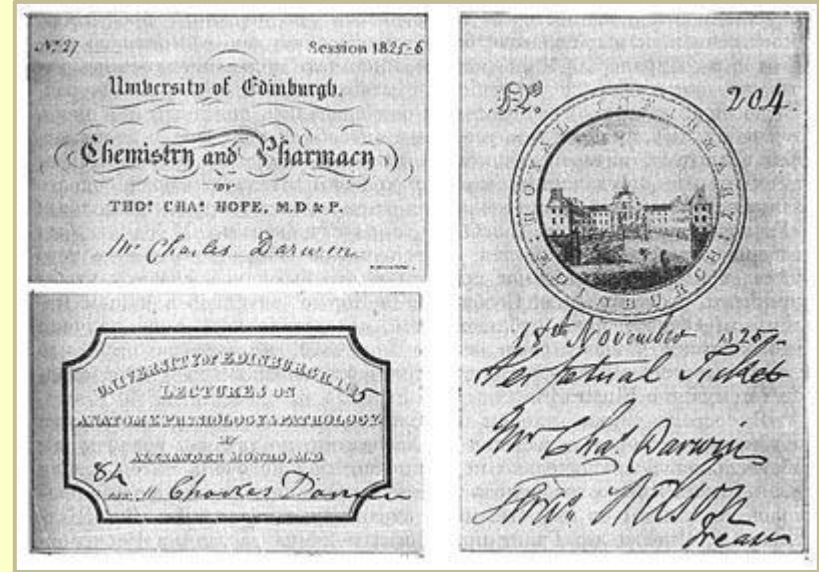 No. 27 Session 1825-6
University of Edinburgh.
Chemistry and Pharmacy
BY
THOS. CHAS. HOPE, M.D & P.
Mr Charles Darwin
UNIVERSITY OF EDINBURGH 1825
LECTURES ON
ANATOMY, PHYSIOLOGY & PATHOLOGY
BY
ALEXANDER MONRO, M.D.
84
Charles Darwin
No. 204.
ROYAL INFIRMARY EDINBURGH
18th November 1825
Perpetual Ticket
Mr Chas. Darwin
Wilson
Treasr